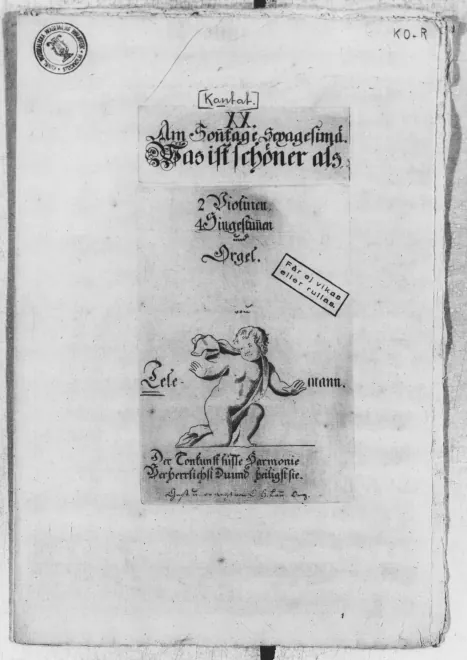 KO-R
[Kantat.]
XX.
Am Sontage Sexagesimä.
Was ist schöner als
2 Violinen,
4 Singestimen
und
Orgel.
Får ej vikas
eller rullas.
von
Tele-mann.
Der Tonkunst süsse Harmonie
Verherrlichst Du und heiligst sie.